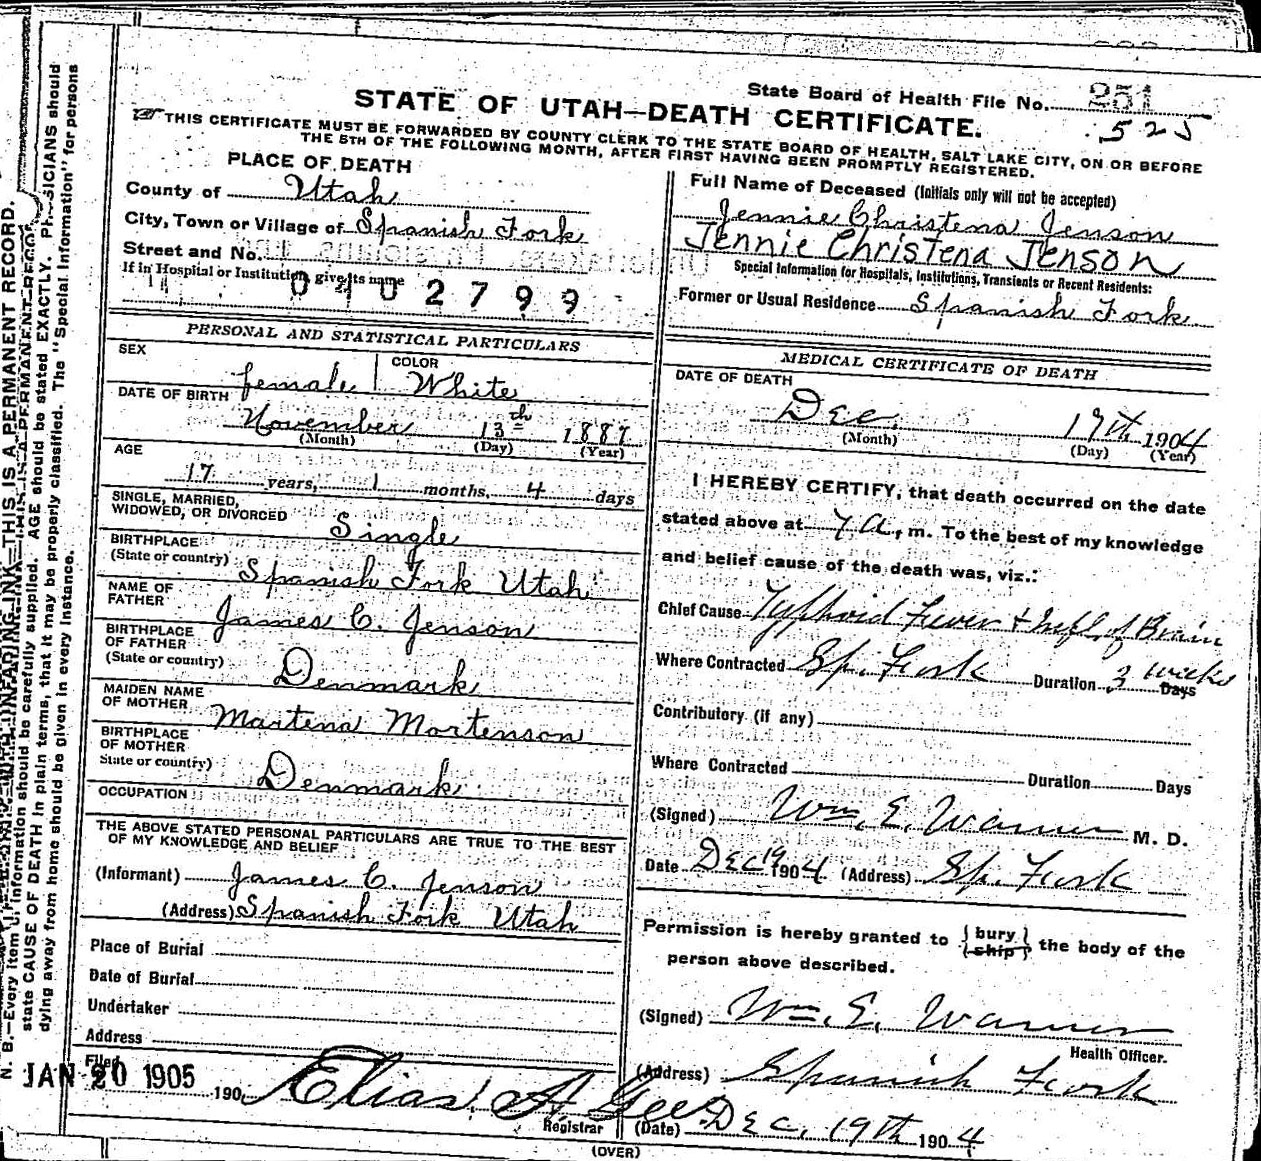 State Board of Health File No. 251
525
STATE OF UTAH—DEATH CERTIFICATE.
THIS CERTIFICATE MUST BE FORWARDED BY COUNTY CLERK TO THE STATE BOARD OF HEALTH, SALT LAKE CITY, ON OR BEFORE
THE 5TH OF THE FOLLOWING MONTH, AFTER FIRST HAVING BEEN PROMPTLY REGISTERED.
PLACE OF DEATH
County of Utah
City, Town or Village of Spanish Fork
Street and No.
If in Hospital or Institution, give its name
0402799
Full Name of Deceased (Initials only will not be accepted)
Jennie Christena Jenson
Jennie Christena Jenson
Special Information for Hospitals, Institutions, Transients or Recent Residents:
Former or Usual Residence Spanish Fork
PERSONAL AND STATISTICAL PARTICULARS
SEX female COLOR White
DATE OF BIRTH November 13th 1887
(Month) (Day) (Year)
AGE
17 years, 1 months, 4 days
SINGLE, MARRIED,
WIDOWED, OR DIVORCED Single
BIRTHPLACE
(State or country) Spanish Fork Utah
NAME OF
FATHER James C. Jenson
BIRTHPLACE
OF FATHER
(State or country) Denmark
MAIDEN NAME
OF MOTHER Martena Mortenson
BIRTHPLACE
OF MOTHER
State or country) Denmark
OCCUPATION
THE ABOVE STATED PERSONAL PARTICULARS ARE TRUE TO THE BEST
OF MY KNOWLEDGE AND BELIEF
(Informant) James C. Jenson
(Address) Spanish Fork Utah
Place of Burial
Date of Burial
Undertaker
Address
Filed
JAN 20 1905 190 Elias A Gee
Registrar
MEDICAL CERTIFICATE OF DEATH
DATE OF DEATH
Dec. 17th 1904
(Month) (Day) (Year)
I HEREBY CERTIFY, that death occurred on the date
stated above at 7 a, m. To the best of my knowledge
and belief cause of the death was, viz.:
Chief Cause Typhoid Fever + Infl. of Brain
Where Contracted Sp. Fork Duration 3 weeks Days
Contributory (if any)
Where Contracted Duration Days
(Signed) Wm. E. Warner M. D.
Date Dec 19 1904 (Address) Sp. Fork
Permission is hereby granted to { bury / ship } the body of the
person above described.
(Signed) Wm. E. Warner
Health Officer.
(Address) Spanish Fork
(Date) Dec. 19th 1904
(OVER)
N. B.—Every item of information should be carefully supplied. AGE should be stated EXACTLY. PHYSICIANS should
state CAUSE OF DEATH in plain terms, that it may be properly classified. The "Special Information" for persons
dying away from home should be given in every instance.
THIS IS A PERMANENT RECORD.